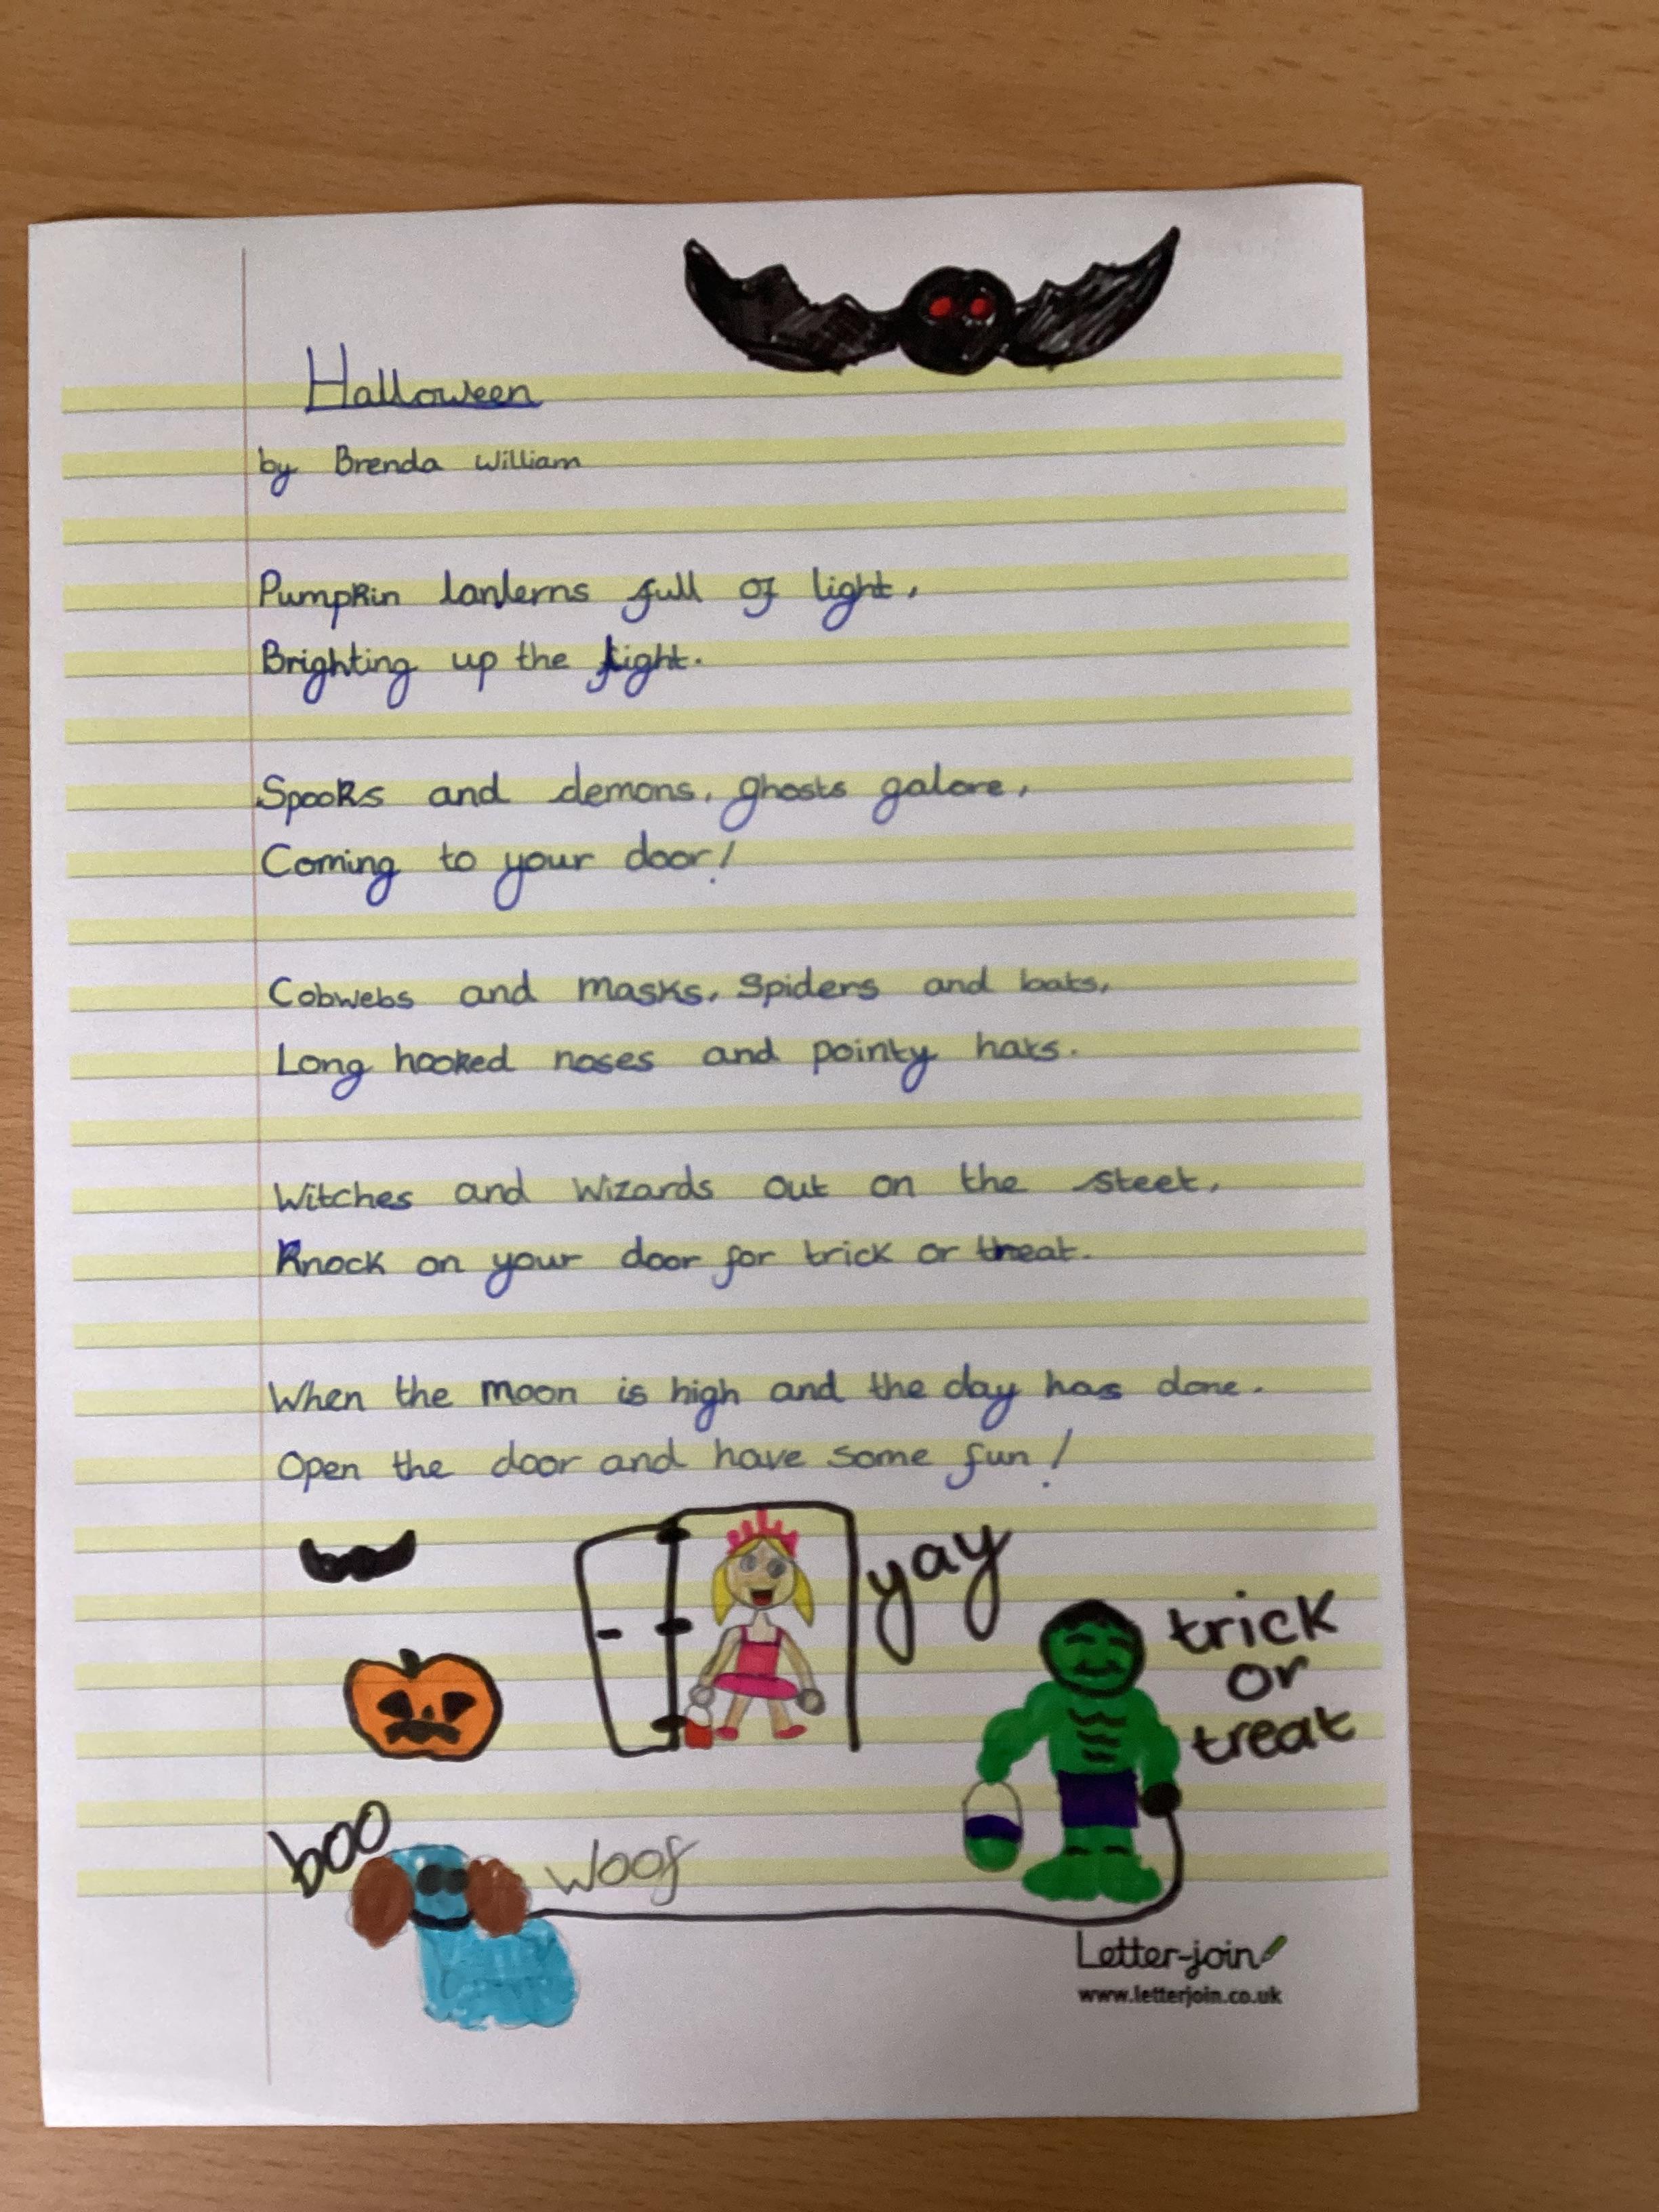 Halloween
by Brenda William
Pumpkin lanterns full of light,
Brighting up the light.
Spooks and demons, ghosts galore,
Coming to your door!
Cobwebs and masks, Spiders and bats,
Long hooked noses and pointy hats.
Witches and Wizards out on the steet,
Knock on your door for trick or treat.
When the moon is high and the day has done.
Open the door and have some fun!
yay
trick
or
treat
boo
Woof
Letter-join
www.letterjoin.co.uk